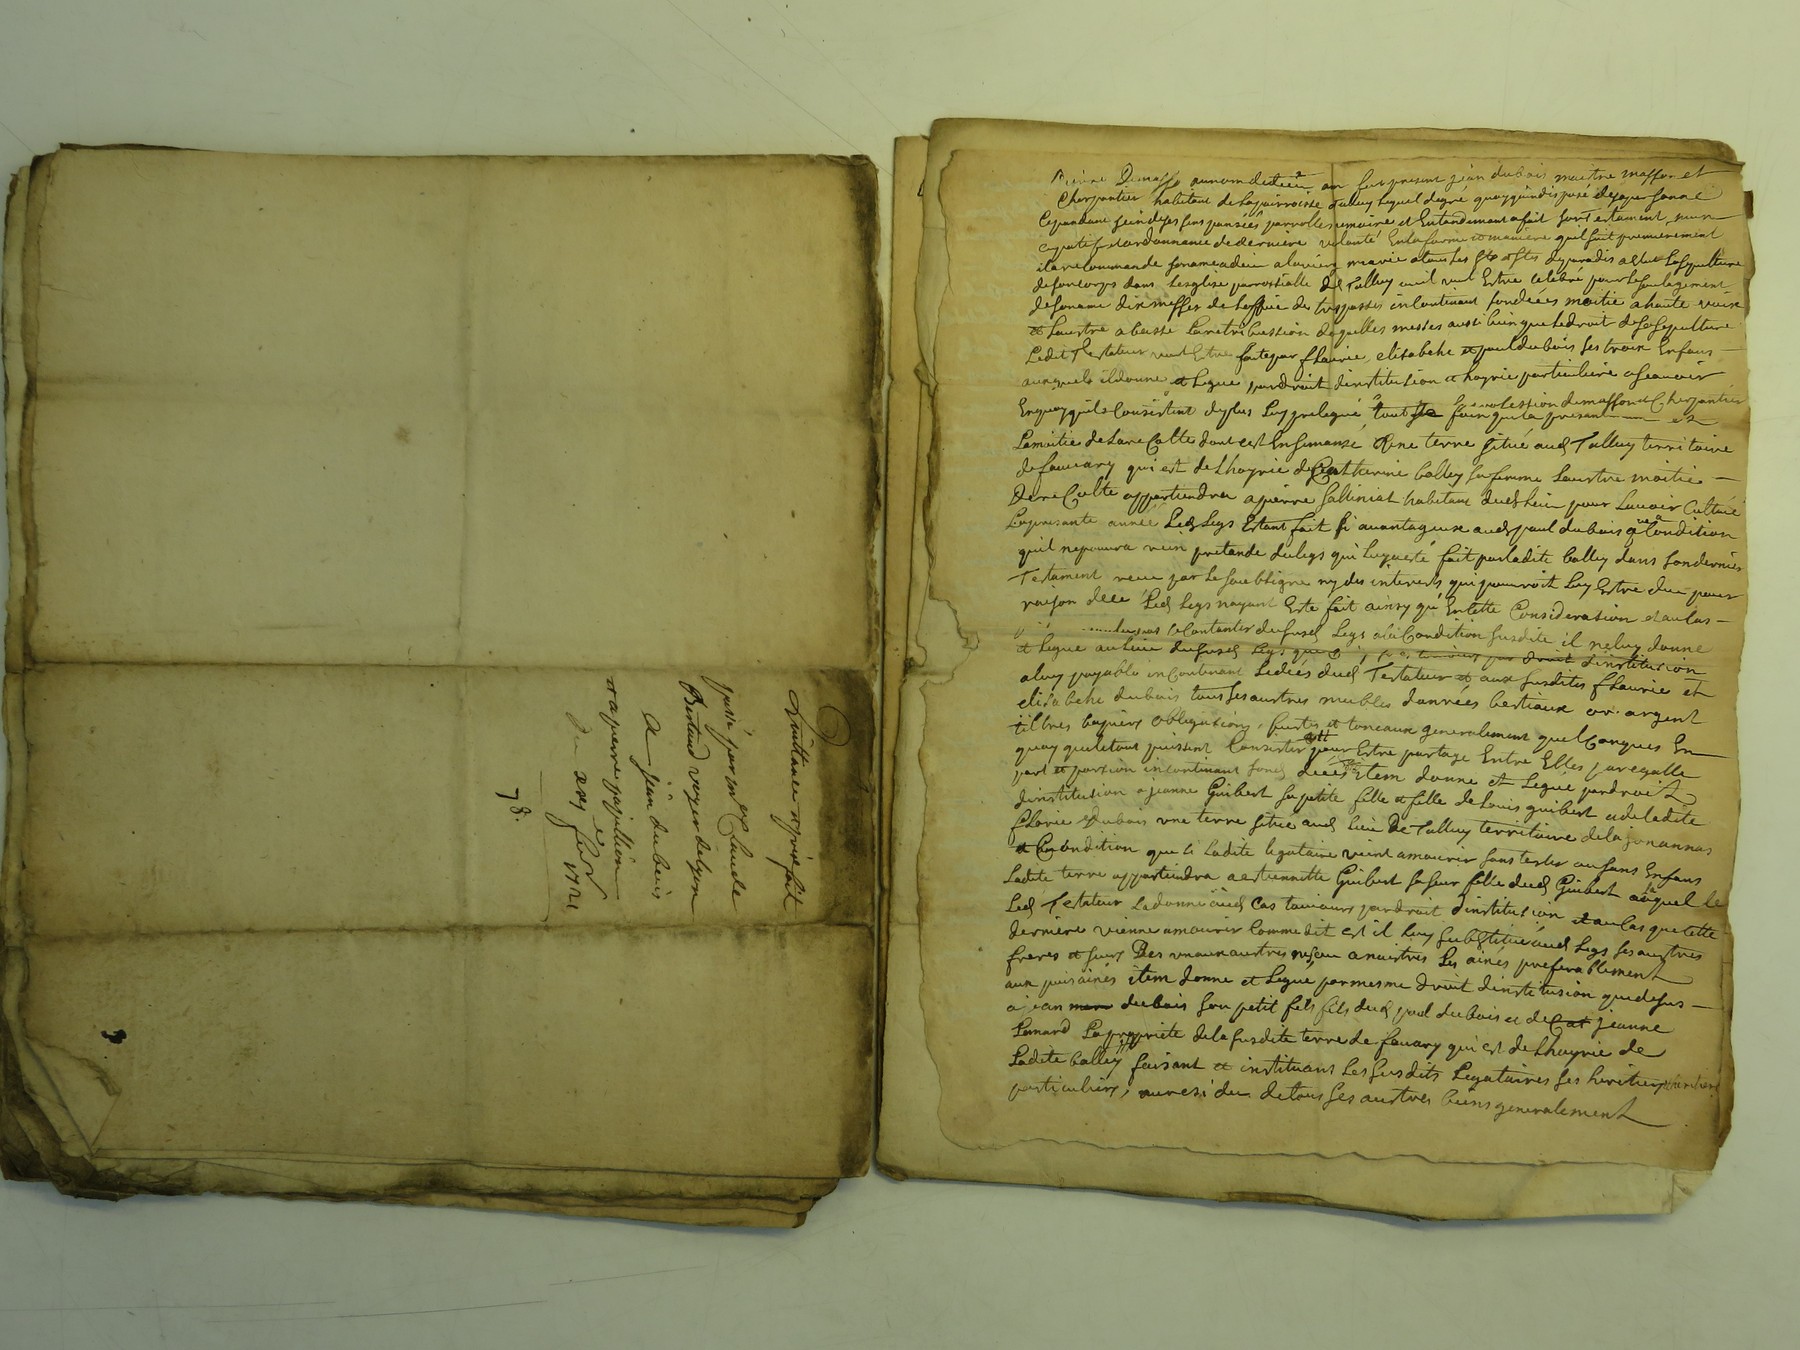 Quittance a prix fait
passé par mre Claude
Bertrand voyer de lyon
A jean dubois
et a pierre papillion
du xxe febr 1721
78.
au nom de dieu fut present jean dubois maitre masson et
Charpentier habitant de la parroisse Talluy lequel de gré quoy quindisposé de sa personne
Cependant sein de ses sens pansées parrolle memoire et Entandement a fait son Testament nun
cupatif et ordonnance de derniere volonté En la forme et maniere quil suit premierement
il a recommandé son ame a dieu a la vierge marie a tous les Sts et Stes du paradis a esleu la sepulture
de son corps dans lesglise parrossialle de Talluy ou il veut Estre celebré pour le soulagement
de son ame dix messes de loffice des trepassés incontinant fondécés moitie a haute voix
et lautre a basse la retribussion desquelles messes aussi bien que le droit de sa sepulture
Ledit Testateur veut Estre faite par flaurie, elisabeht et paul dubois ses trois Enfans
auxquels il donne et legue par droit dinstitution et hoyrie particuliere a scavoir
En quoy quils Consistent de plus luy prelegué tout le foin que la presant et
la profession de masson et Cherpantier
La moitie de la recolte dont est Ensemansé Une terre situé aud Talluy territoire
de favary qui est de lhoyrie de Catherine balley sa femme lautre moitié
De recolte appartiendra a pierre galliniat habitant dud lieu pour lavoir Cultivé
La presante année Led legs Estant fait si avantageux aud paul dubois qua Condition
quil ne pourra rien pretandre du legs qui luy a esté fait par ladite balley dans son dernier
Testament receu par le soubsigné ny des interests qui pourroit luy Estre deu pour
raison dece Led legs nayant Esté fait ainsy qu'En cette Consideration et au cas
contanter du susd legs a la Condition susdite il ne luy donne
et legue au lieu du susd legs que toujours par droit dinstitution
a luy payable incontinant le décés dud Testateur et aux susdites flaurie et
elisabeht dubois tous ses austres meubles danrées bestiaux or argent
tiltres papiers obligations, futs et toneaux generalement quelconques En
quoy que le tout puissent Consister pour Estre partagé Entre Elles par egalle
part et portion incontinant son décés item donne et legue par droit
dinstitution a jeanne Guibert sa petite fille et fille de louis guibert et de ladite
florie dubois une terre située aud lieu De Talluy territoire de la jonannas
et a Condition que si ladite legataire vient a mourir sans tester ou sans Enfans
Ladite terre appartiendra a estiennette Guibert sa seur fille dud Guibert a laquel le
Led Testateur la donne aud Cas toujours par droit dinstitution et au cas que cette
derniere vienne a mourir Comme dit est il luy substitue aud legs ses austres
freres et seurs Des uns aux austres naiseu a naistres Les ainés preferablement
aux puisainés item donne et legue par mesme droit dinstitution que dessus
a jean dubois son petit fils fils dud paul dubois et de jeanne
Lenard La propriete de la susdite terre de favary qui est de lhoyrie de
Ladite balley faisant et instituant les susdits Legataires ses heritiers
particuliers, au residu de tous ses austres biens generalement